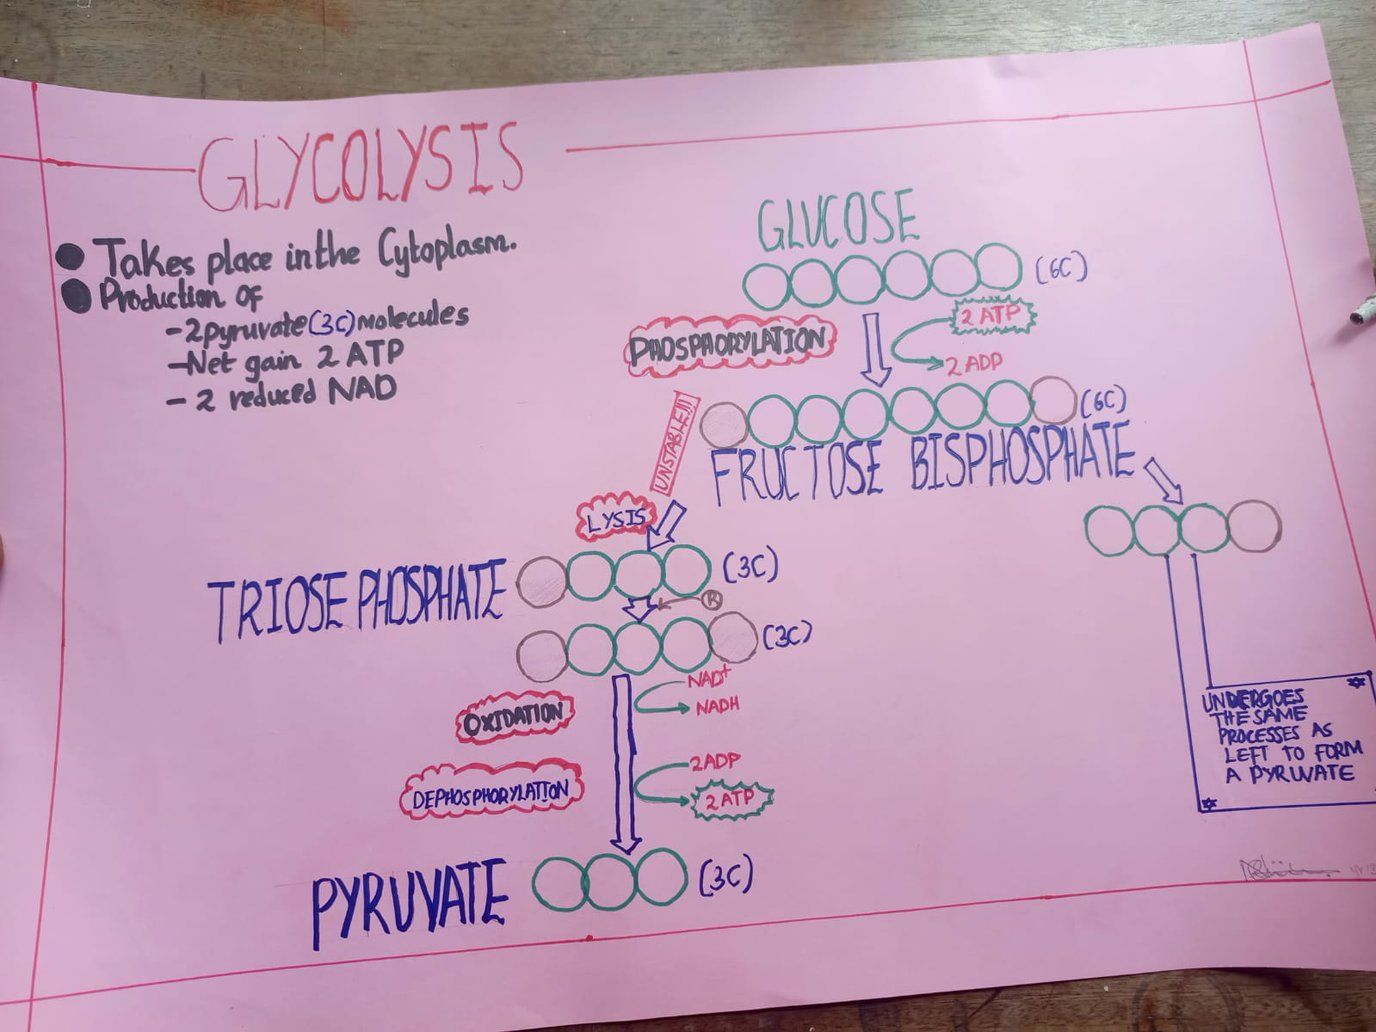 GLYCOLYSIS
● Takes place in the Cytoplasm.
● Production of
- 2 pyruvate (3C) molecules
- Net gain 2 ATP
- 2 reduced NAD
GLUCOSE
(6C)
PHOSPHORYLATION
2 ATP
2 ADP
(6C)
FRUCTOSE BISPHOSPHATE
UNSTABLE!!!
LYSIS
TRIOSE PHOSPHATE
(3C)
(3C)
NAD+
NADH
OXIDATION
2ADP
2ATP
DEPHOSPHORYLATION
PYRUVATE
(3C)
UNDERGOES
THE SAME
PROCESSES AS
LEFT TO FORM
A PYRUVATE